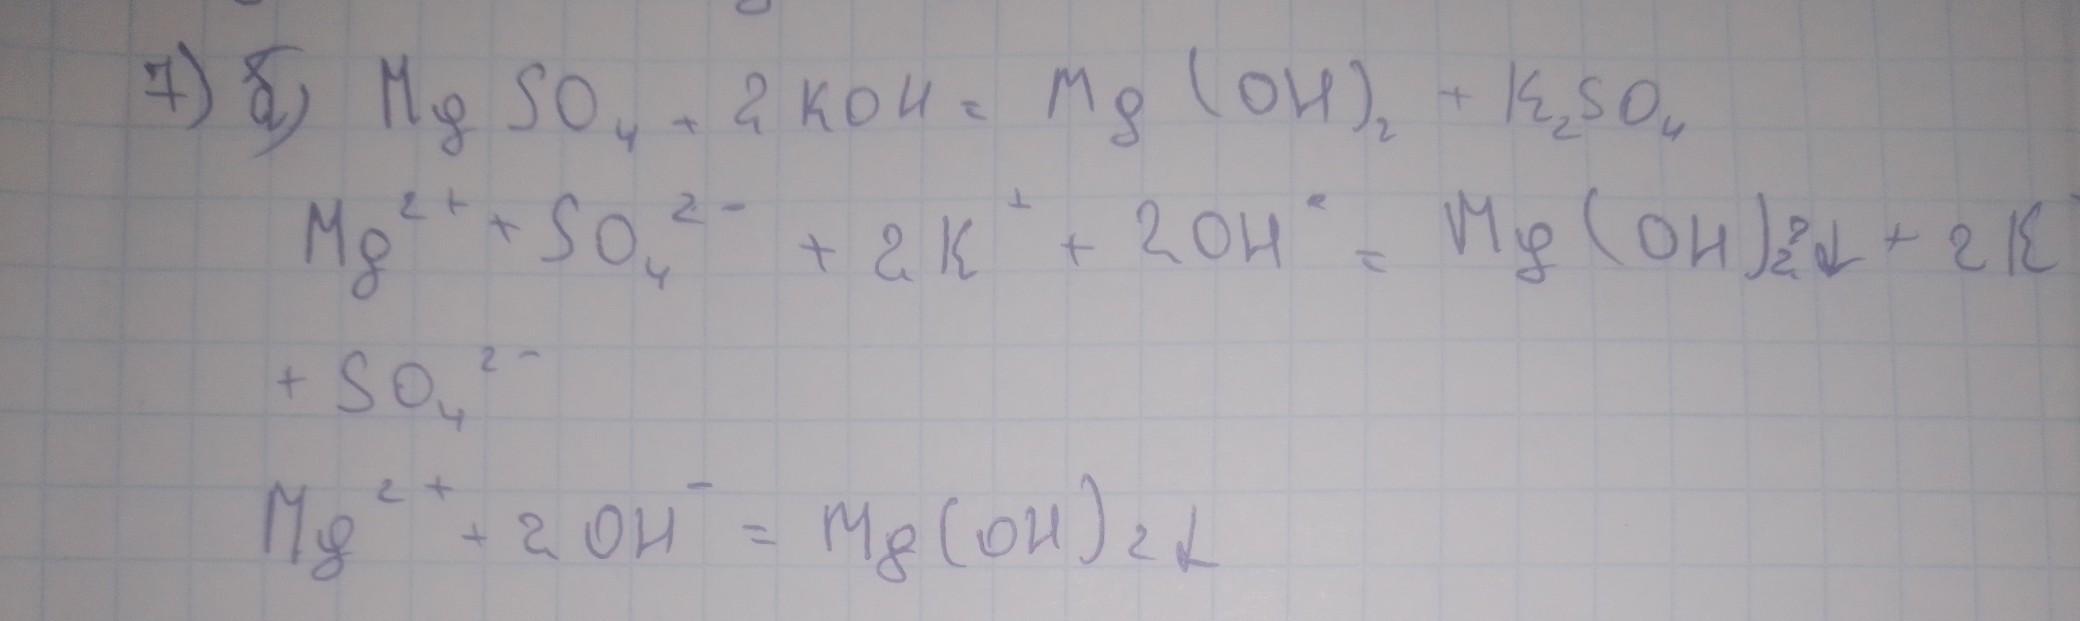 7) б) MgSO₄ + 2KOH = Mg(OH)₂ + K₂SO₄
Mg²⁺ + SO₄²⁻ + 2K⁺ + 2OH⁻ = Mg(OH)₂↓ + 2K⁺
+ SO₄²⁻
Mg²⁺ + 2OH⁻ = Mg(OH)₂↓